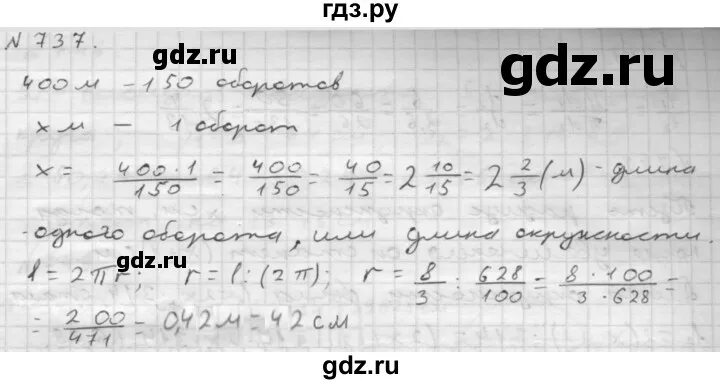 гдз.ру
N 737.
gdz.ru
gdz.ru
400 м – 150 оборотов
x м – 1 оборот
x = 400·1/150 = 400/150 = 40/15 = 2 10/15 = 2 2/3 (м) - длина
одного оборота, или длина окружности.
gdz.ru
l = 2πr; r = l : (2π); r = 8/3 : 628/100 = 8·100/3·628 =
= 200/471 = 0,42 м = 42 см
gdz.ru
gdz.ru